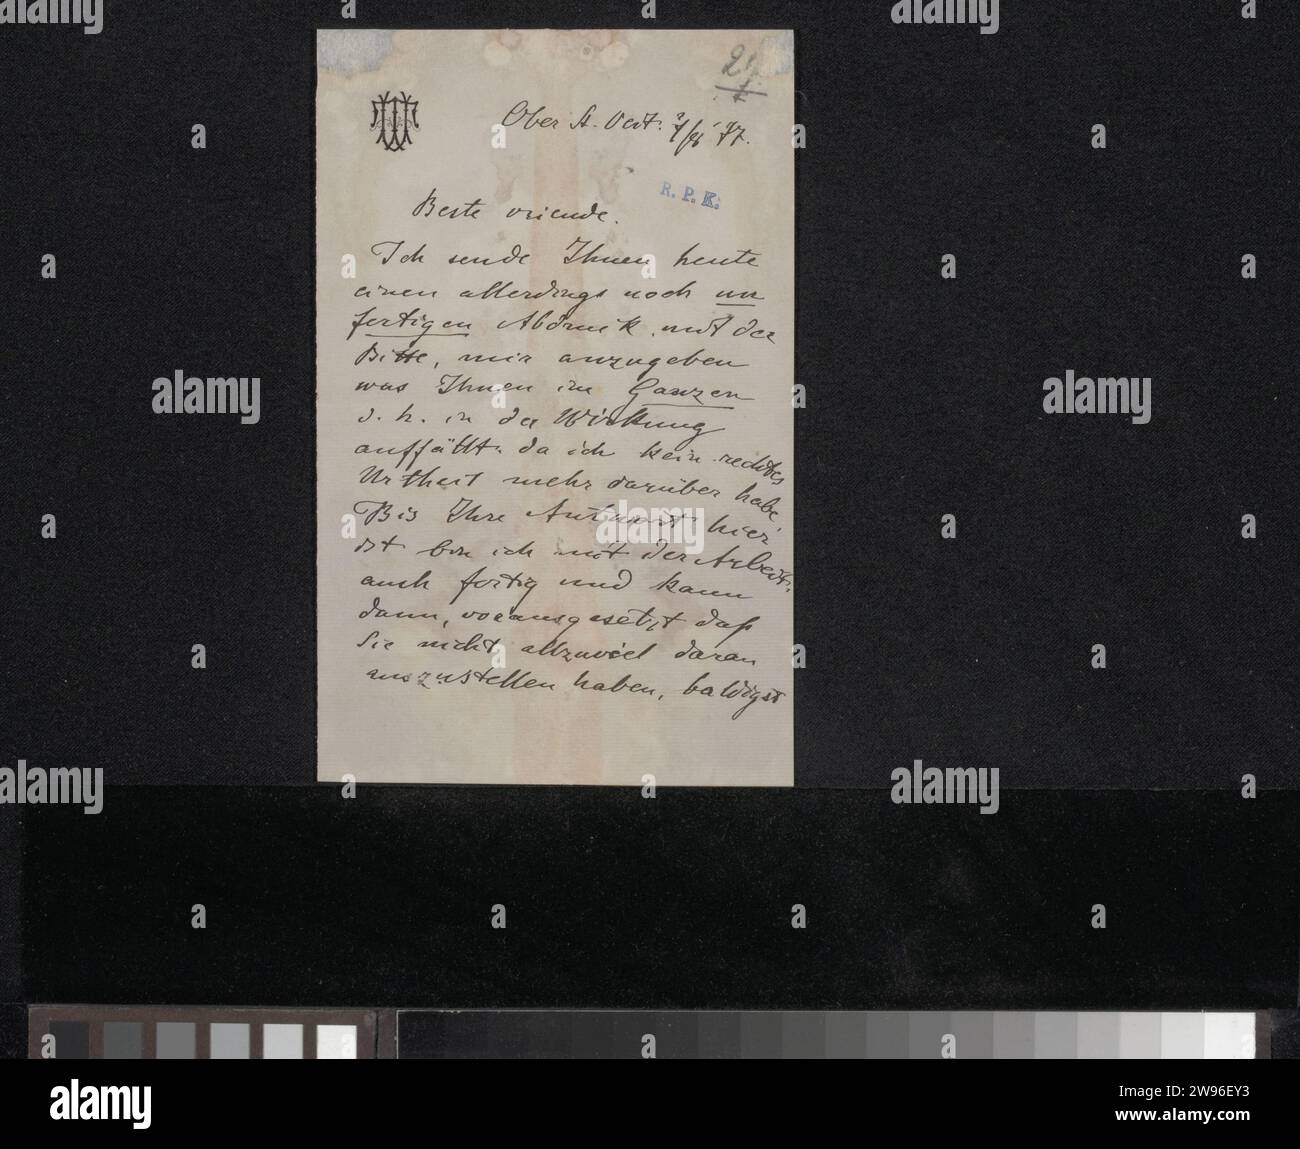 Ober St. Veit.
R. P. K.
Beste vriende.
Ich sende Ihnen heute
einen allerdings noch un
fertigen Abdruck mit der
Bitte, mir anzugeben
was Ihnen im Ganzen
d. h. in der Wirkung
auffällt. da ich kein rechtes
Urtheil mehr darüber habe
Bis Ihre Antwort hier
ist bin ich mit der Arbeit
auch fertig und kann
dann, vorausgesetzt daß
Sie nicht allzuviel daran
auszustellen haben, baldigst
alamy
Image ID: 2W96EY3
www.alamy.com